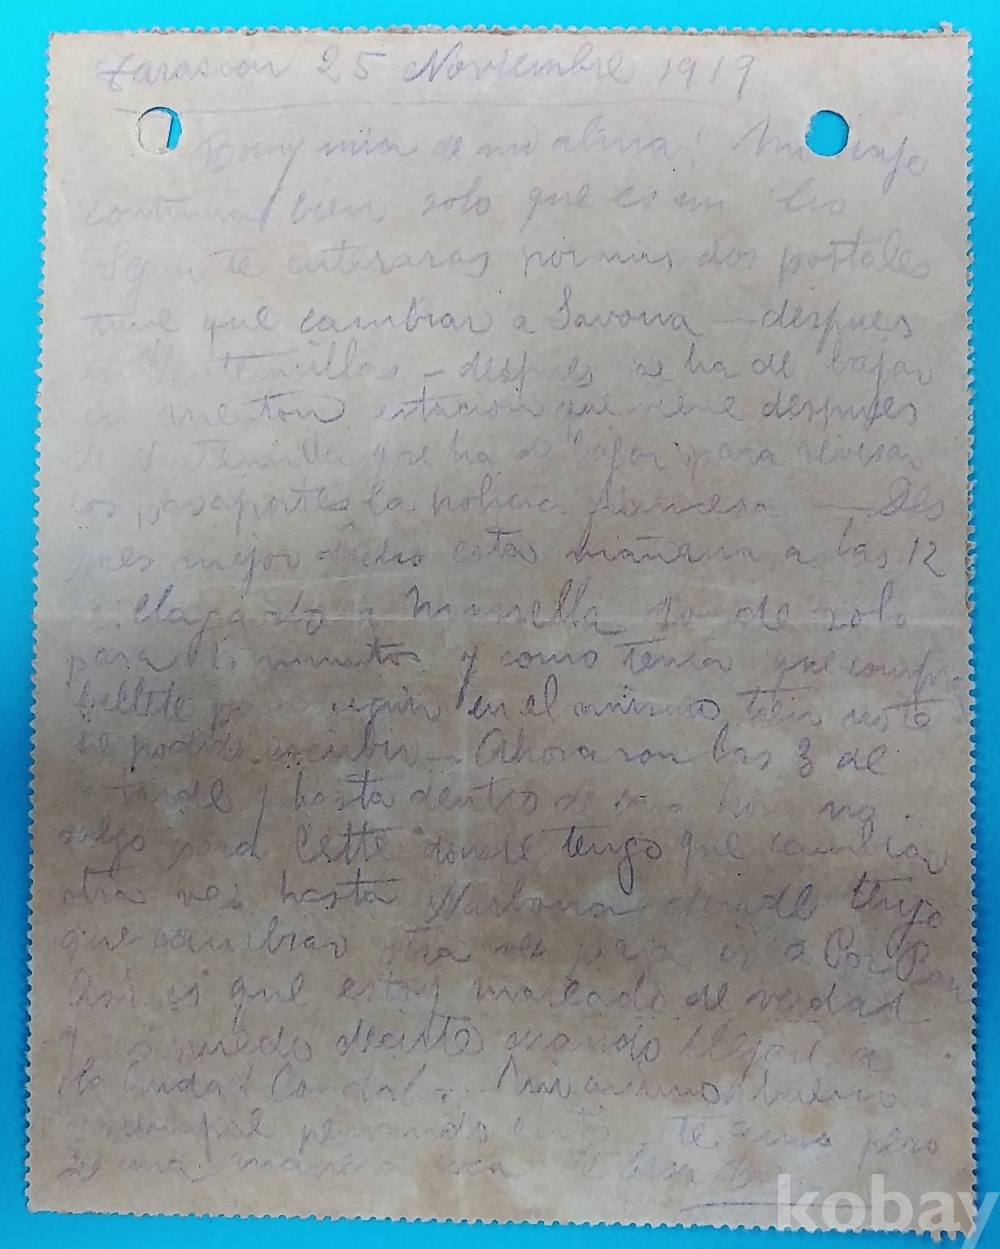 Tarascon 25 Noviembre 1919
Bony mia de mi alma! Mi viaje
continua bien solo que es un lio
Segun te enteraras por mis dos postales
tuve que cambiar a Savona - despues
en Ventimillas - despues se ha de bajar
en menton estacion que viene despues
de Ventimilla que ha de bajar para revisar
los pasaportes la policia francesa - Des
pues mejor dicho esta mañana a las 12
llegado a Marsella donde solo
para 15 minutos y como tenia que comprar
billete para seguir en el mismo tren no te
he podido escribir - Ahora son las 3 de
tarde y hasta dentro de una hora no
salgo para Cette donde tengo que cambiar
otra vez hasta Narbona donde tengo
que cambiar otra vez para ir a Por Bou
Asi es que estoy mareado de verdad
y no puedo decirte cuando llegare a
la Ciudad Condal - Mi animo bueno
siempre pensando en ti te amo pero
de una manera loca Te besa
kobay